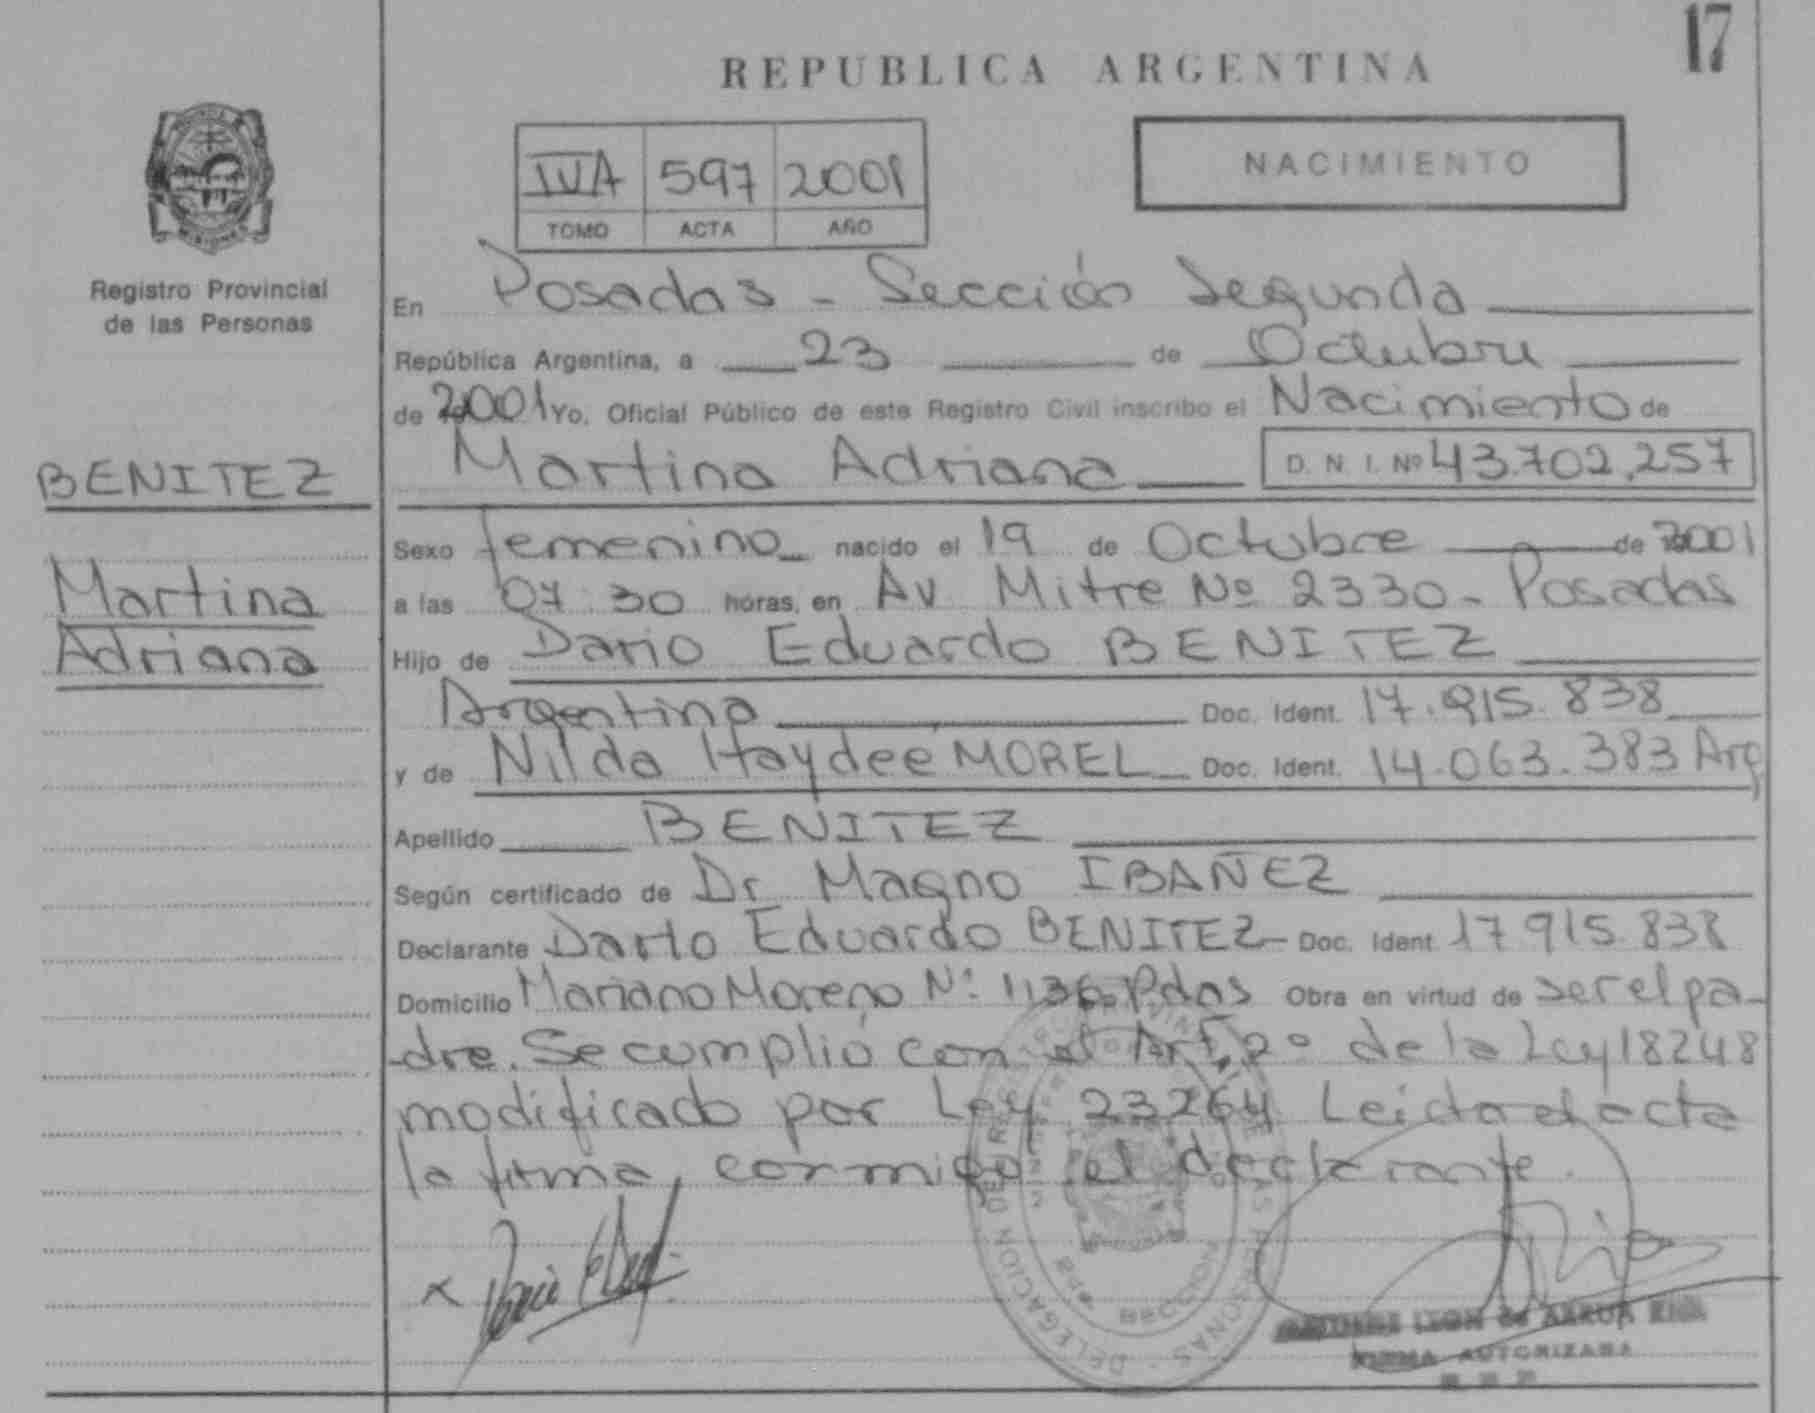 17
REPUBLICA ARGENTINA
NACIMIENTO
IVA 597 2001
TOMO ACTA AÑO
MISIONES
Registro Provincial
de las Personas
BENITEZ
Martina
Adriana
En Posadas - Sección Segunda
República Argentina, a 23 de Octubre
de 2001 Yo, Oficial Público de este Registro Civil inscribo el Nacimiento de
Martina Adriana D. N. I. Nº 43.702.257
Sexo femenino nacido el 19 de Octubre de 2001
a las 07:30 horas, en Av Mitre Nº 2330 - Posadas
Hijo de Dario Eduardo BENITEZ
Argentina Doc. Ident. 17.915.838
y de Nilda Haydee MOREL Doc. Ident. 14.063.383 Arg
Apellido BENITEZ
Según certificado de Dr Magno IBAÑEZ
Declarante Dario Eduardo BENITEZ Doc. Ident 17 915.838
Domicilio Mariano Moreno Nº 1136 Pdas Obra en virtud de ser el pa-
dre. Se cumplió con el Art. 2º de la Ley 18248
modificado por Ley 23264 Leida el acta
la firma, conmigo el declarante.
DELEGACION PERSONAS
SECCION
LEON de
FIRMA AUTORIZADA